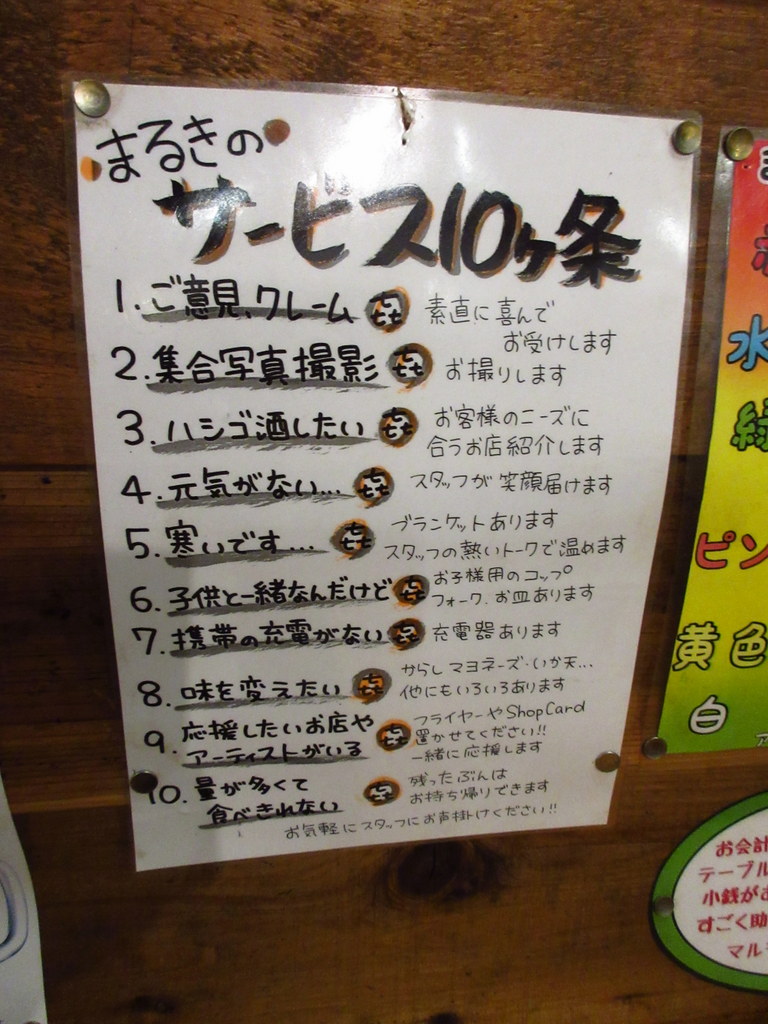 まるきの
サービス10ヶ条
1. ご意見、クレーム 㐂 素直に喜んで
お受けします
2. 集合写真撮影 㐂 お撮りします
3. ハシゴ酒したい 㐂 お客様のニーズに
合うお店紹介します
4. 元気がない... 㐂 スタッフが笑顔届けます
5. 寒いです... 㐂 ブランケットあります
スタッフの熱いトークで温めます
6. 子供と一緒なんだけど 㐂 お子様用のコップ
フォーク、お皿あります
7. 携帯の充電がない 㐂 充電器あります
8. 味を変えたい 㐂 からしマヨネーズ・いか天...
他にもいろいろあります
9. 応援したいお店や
アーティストがいる 㐂 フライヤーやShopCard
置かせてください!!
一緒に応援します
10. 量が多くて
食べきれない 㐂 残ったぶんは
お持ち帰りできます
お気軽にスタッフにお声掛けください!!
水
緑
ピン
黄色
白
お会計
テーブル
小銭がお
すごく助
マル